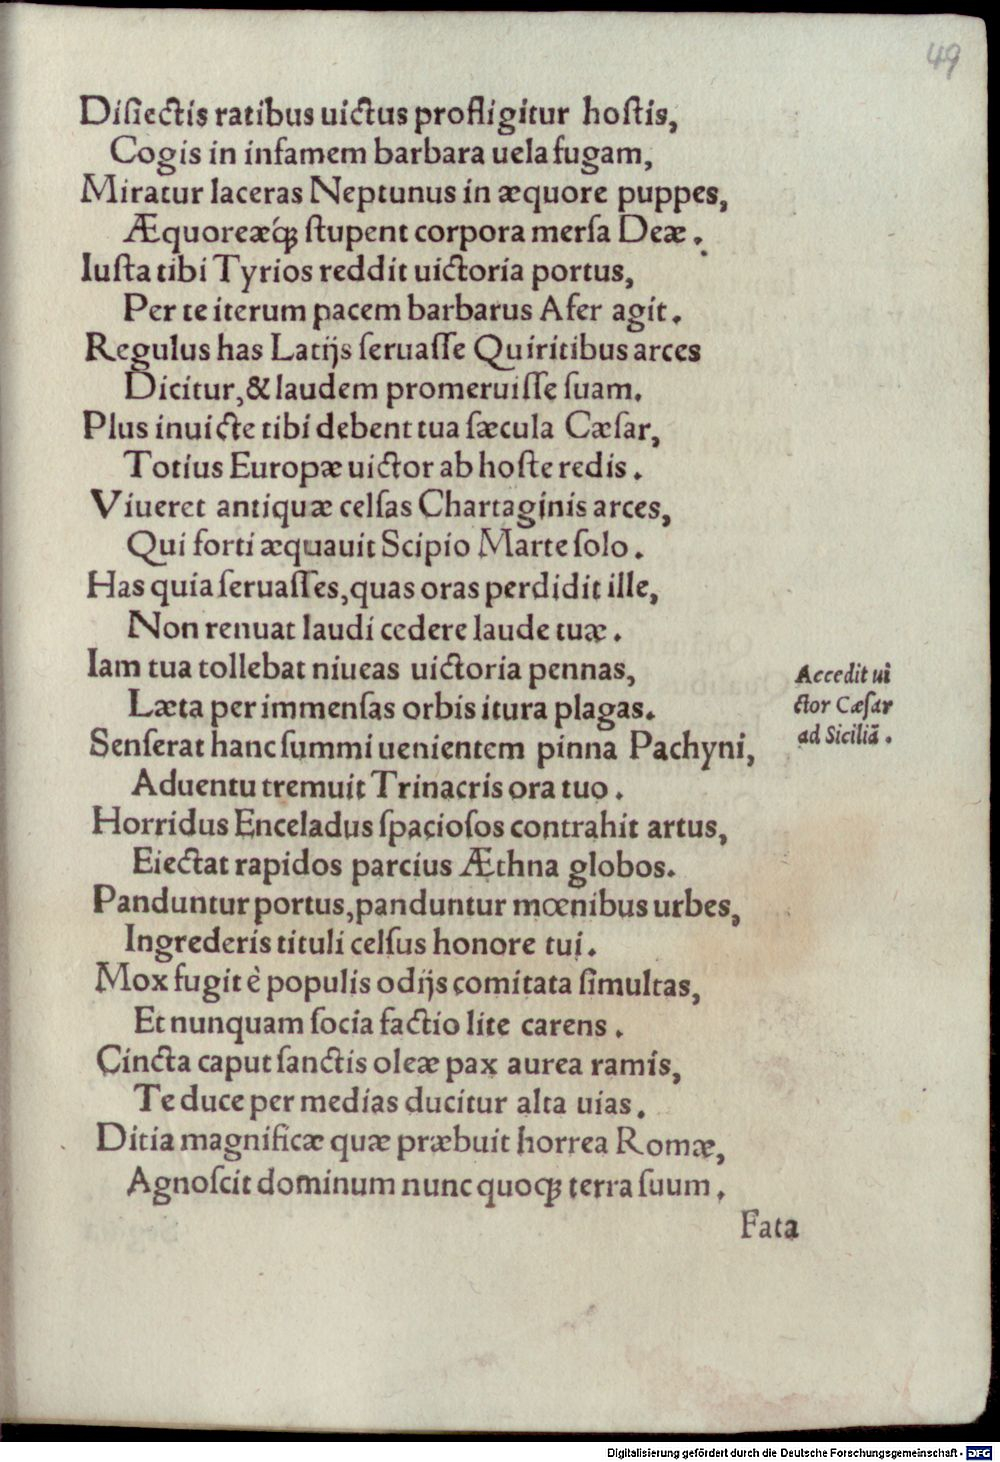 49
Disiectis ratibus uictus profligitur hostis,
Cogis in infamem barbara uela fugam,
Miratur laceras Neptunus in æquore puppes,
Æquoreæq́ꝫ stupent corpora mersa Deæ.
Iusta tibi Tyrios reddit uictoria portus,
Per te iterum pacem barbarus Afer agit.
Regulus has Latijs seruasse Quiritibus arces
Dicitur, & laudem promeruisse suam.
Plus inuicte tibi debent tua sæcula Cæsar,
Totius Europæ uictor ab hoste redis.
Viueret antiquæ celsas Chartaginis arces,
Qui forti æquauit Scipio Marte solo.
Has quia seruasses, quas oras perdidit ille,
Non renuat laudi cedere laude tuæ.
Iam tua tollebat niueas uictoria pennas,
Læta per immensas orbis itura plagas.
Senserat hanc summi uenientem pinna Pachyni,
Aduentu tremuit Trinacris ora tuo.
Horridus Enceladus spaciosos contrahit artus,
Eiectat rapidos parcius Æthna globos.
Panduntur portus, panduntur mœnibus urbes,
Ingrederis tituli celsus honore tui.
Mox fugit è populis odijs comitata simultas,
Et nunquam socia factio lite carens.
Cincta caput sanctis oleæ pax aurea ramis,
Te duce per medias ducitur alta uias.
Ditia magnificæ quæ præbuit horrea Romæ,
Agnoscit dominum nunc quoqꝫ terra suum.
Fata
Accedit ui
ctor Cæsar
ad Siciliã.
Digitalisierung gefördert durch die Deutsche Forschungsgemeinschaft - DFG